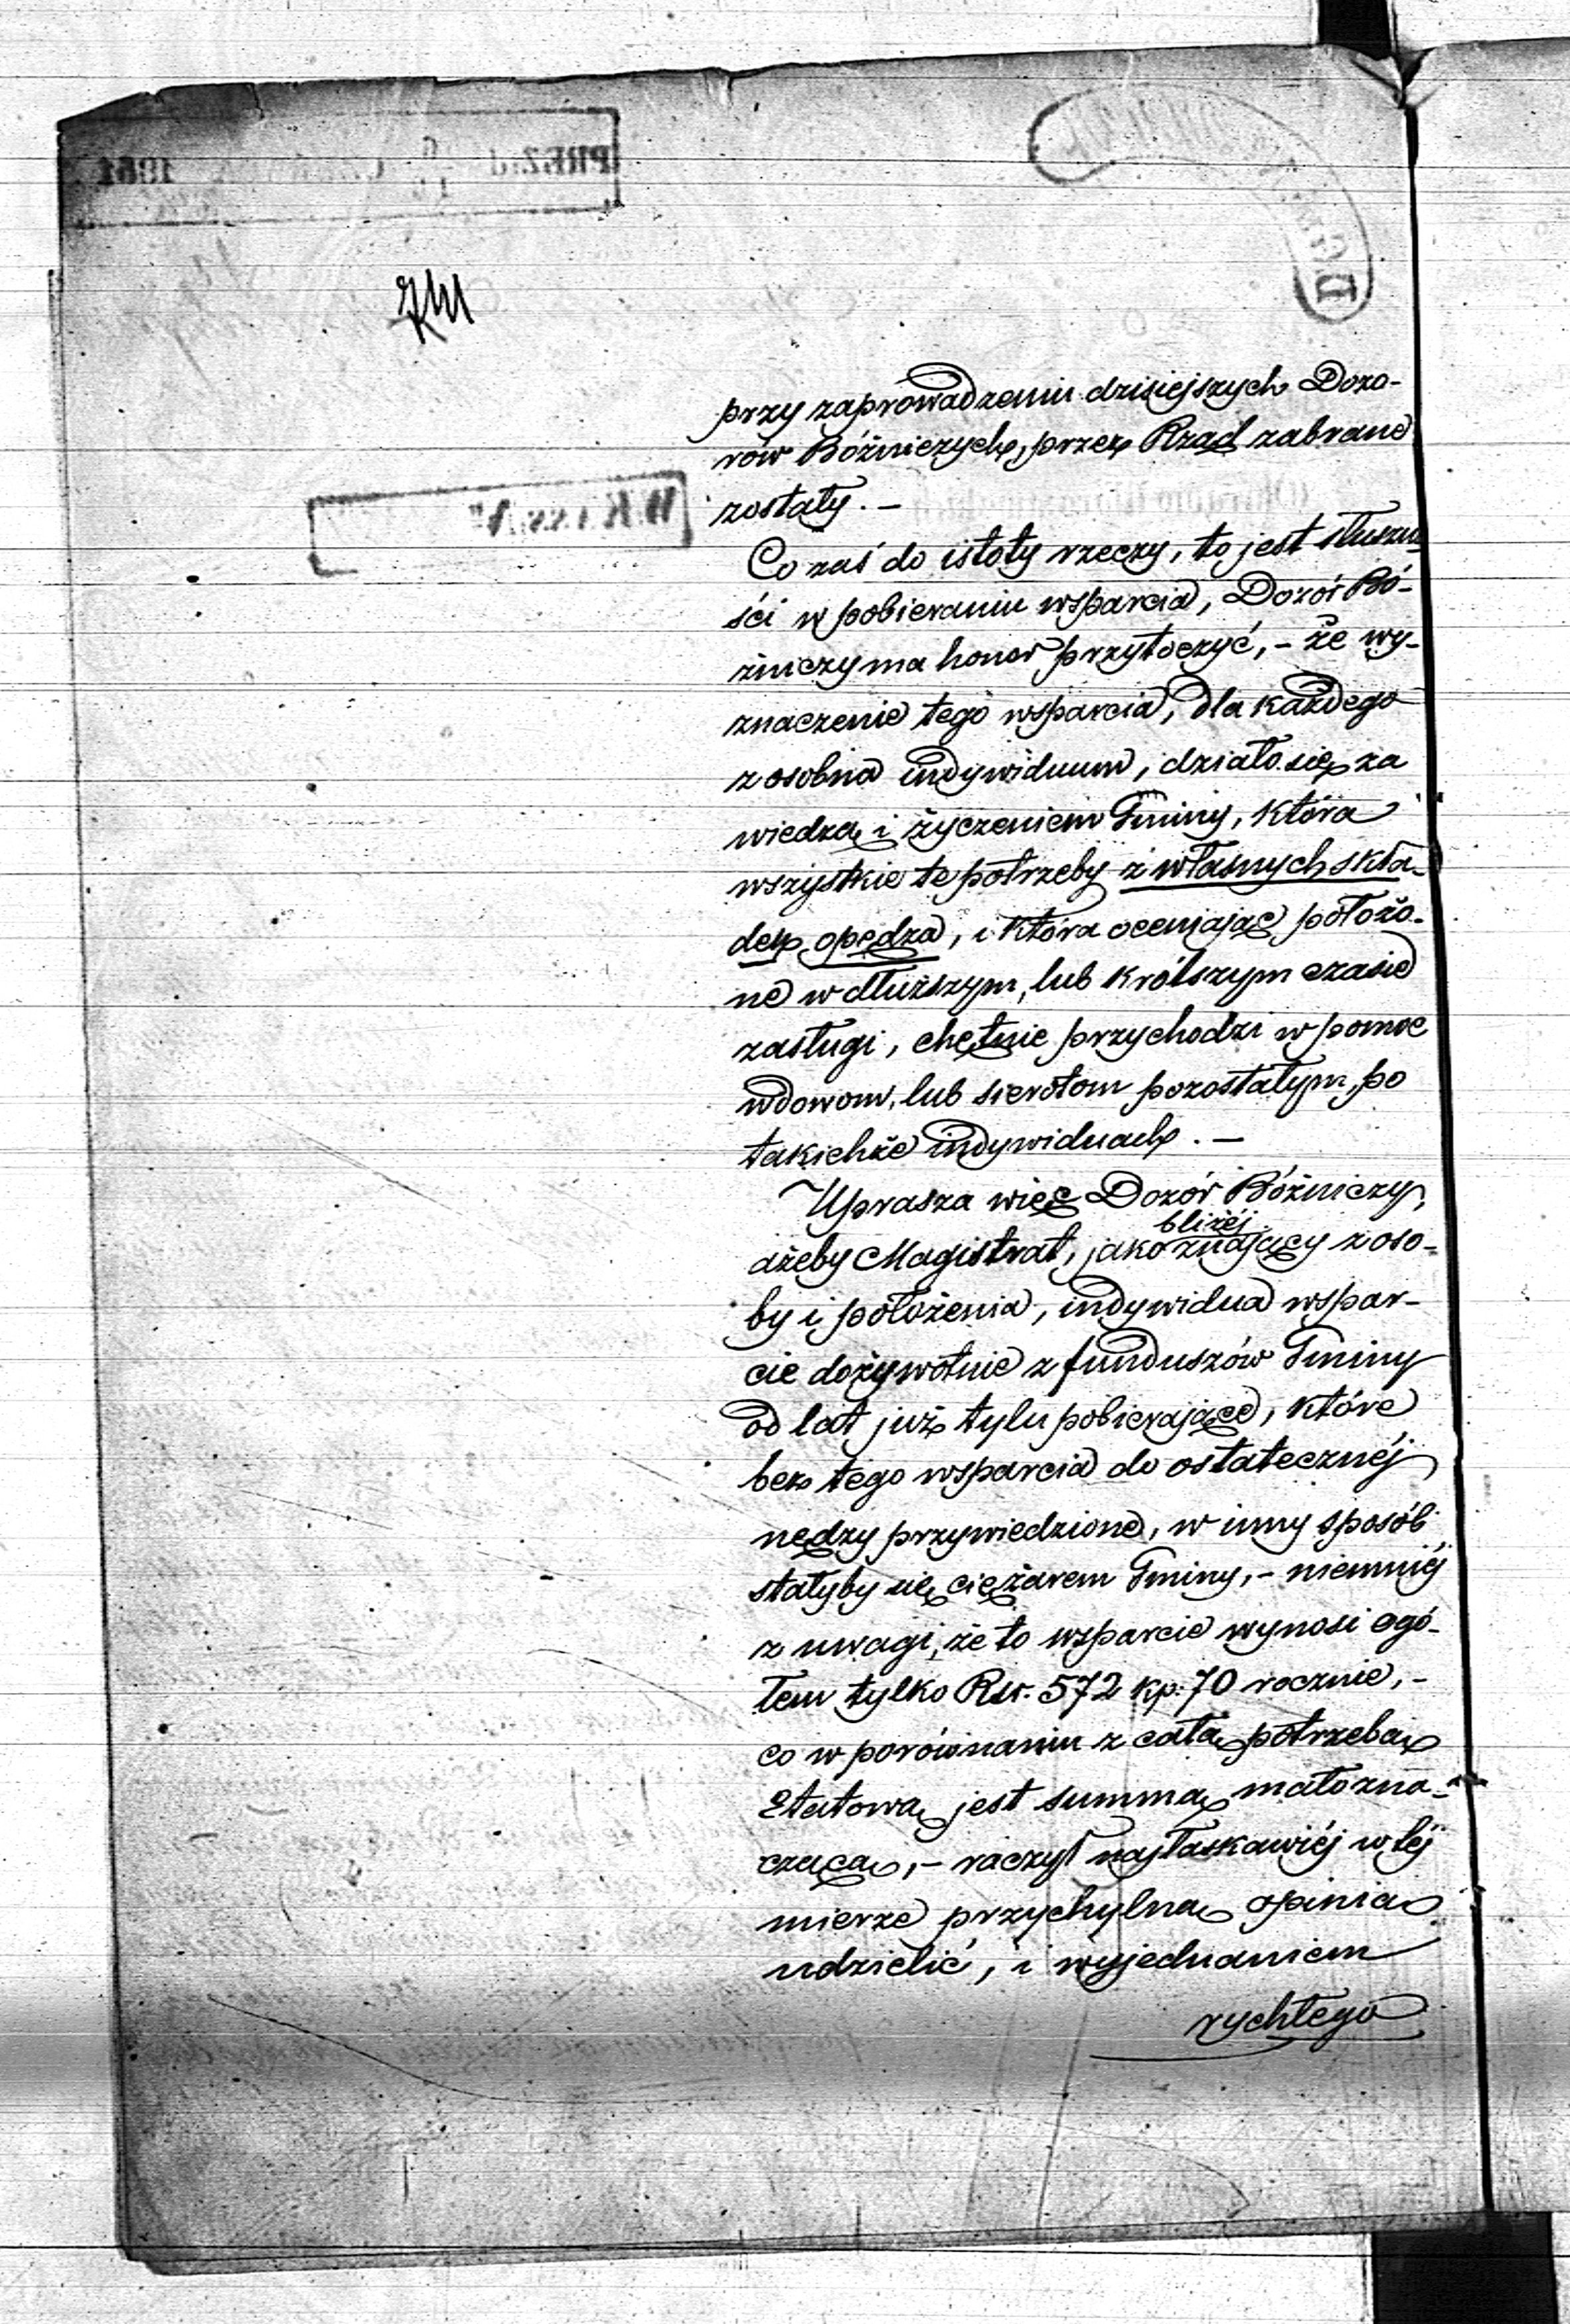 przy zaprowadzeniu dzisiejszych Dozo-
rów Bóżniczych, przez Rząd zabrane
zostały. -
Co zaś do istoty rzeczy, to jest słuszno-
ści w pobieraniu wsparcia, Dozór Bó-
żniczy ma honor przytoczyć, - że wy-
znaczenie tego wsparcia, dla każdego
z osobna indywiduum, działo się za
wiedzą i życzeniem Gminy, która
wszystkie te potrzeby z własnych skła-
dek opędza, i która oceniając położo-
ne w dłuższym, lub krótszym czasie
zasługi, chętnie przychodzi w pomoc
wdowom, lub sierotom pozostałym, po
takichże indywiduach. -
Uprasza więc Dozór Bóżniczy,
ażeby Magistrat, jako bliżéj znający z oso-
by i położenia, indywidua wspar-
cie dożywotnie z funduszów Gminy
od lat już tylu pobierające, które
bez tego wsparcia do ostatecznéj
nędzy przywiedzione, w inny sposób
stałyby się ciężarem Gminy, - niemniéj
z uwagi, że to wsparcie wynosi ogó-
łem tylko Rsr. 572 kp. 70 rocznie, -
co w porównaniu z całą potrzebą
Etatową jest summą mało zna-
czącą, - raczył najłaskawiéj w téj
mierze przychylną opinią
udzielić, i wyjednaniem
rychłego